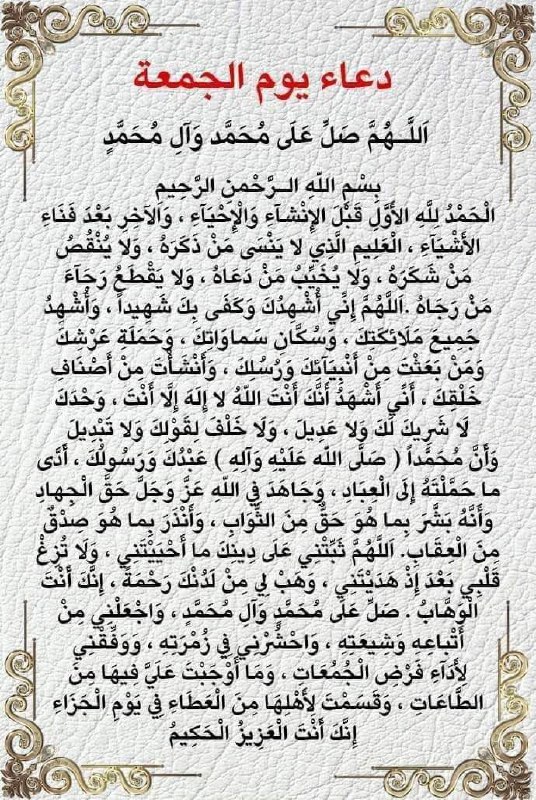 دعاء يوم الجمعة
اَللَّــهُمَّ صَلِّ عَلَى مُحَمَّد وَآلِ مُحَمَّدٍ
بِسْمِ اللّهِ الــرَّحْمنِ الرَّحِيم
الْحَمْدُ لِلَّهِ الأَوَّلِ قَبْلَ الإِنْشآءِ وَالْإِحْيَآءِ ، وَالآخِرِ بَعْدَ فَنَاءِ
الأَشْيَآءِ ، الْعَلِيمِ الَّذِي لا يَنْسَى مَنْ ذَكَرَهُ ، وَلا يُنْقُصُ
مَنْ شَكَرَهُ ، وَلا يُخَيِّبُ مَنْ دَعَاهُ ، وَلا يَقْطَعُ رَجَآءَ
مَنْ رَجَاهُ .اَللَّهُمَّ إِنِّي أُشْهِدُكَ وَكَفَى بِكَ شَهِيداً ، وَأُشْهِدُ
جَمِيعَ مَلَائِكَتِكَ ، وَسُكَّانَ سَماوَاتِكَ ، وَحَمَلَةَ عَرْشِكَ
وَمَنْ بَعَثْتَ مِنْ أَنْبِيَآئِكَ وَرُسُلِكَ ، وَأَنْشَأْتَ مِنْ أَصْنَافِ
خَلْقِكَ ، أَنِّي أَشْهَدُ أَنَّكَ أَنْتَ اللّهُ لا إِلَهَ إِلَّا أَنْتَ ، وَحْدَكَ
لَا شَرِيكَ لَكَ وَلا عَدِيلَ ، وَلَا خَلْفَ لِقَوْلِكَ وَلا تَبْدِيلَ
وَأَنَّ مُحَمَّداً ( صَلَّى اللّه عَلَيْهِ وَآلِهِ ) عَبْدُكَ وَرَسُولُكَ ، أَدَّى
ما حَمَّلْتَهُ إِلَى الْعِبَادِ ، وَجَاهَدَ فِي اللّهِ عَزَّ وَجَلَّ حَقَّ الْجِهادِ
وَأَنَّهُ بَشَّرَ بِما هُوَ حَقٌّ مِنَ الثَّوَابِ ، وَأَنْذَرَ بِما هُوَ صِدْقٌ
مِنَ الْعِقَابِ. اَللَّهُمَّ ثَبِّتْنِي عَلَى دِينِكَ ما أَحْيَيْتَنِي ، وَلَا تُزِغْ
قَلْبِي بَعْدَ إِذْ هَدَيْتَنِي ، وَهَبْ لِي مِنْ لَدُنْكَ رَحْمَةً ، إِنَّكَ أَنْتَ
الْوَهَّابُ . صَلِّ عَلَى مُحَمَّدٍ وَآلِ مُحَمَّدٍ ، وَاجْعَلْنِي مِنْ
أَتْباعِهِ وَشِيعَتِهِ ، وَاحْشُرْنِي فِي زُمْرَتِهِ ، وَوَفِّقْنِي
لِأَدَآءِ فَرْضِ الْجُمُعَاتِ ، وَمَا أَوْجَبْتَ عَلَيَّ فِيهَا مِنَ
الطَّاعَاتِ ، وَقَسَمْتَ لِأَهْلِهَا مِنَ الْعَطَاءِ فِي يَوْمِ الْجَزَاءِ
إِنَّكَ أَنْتَ الْعَزِيزُ الْحَكِيمُ